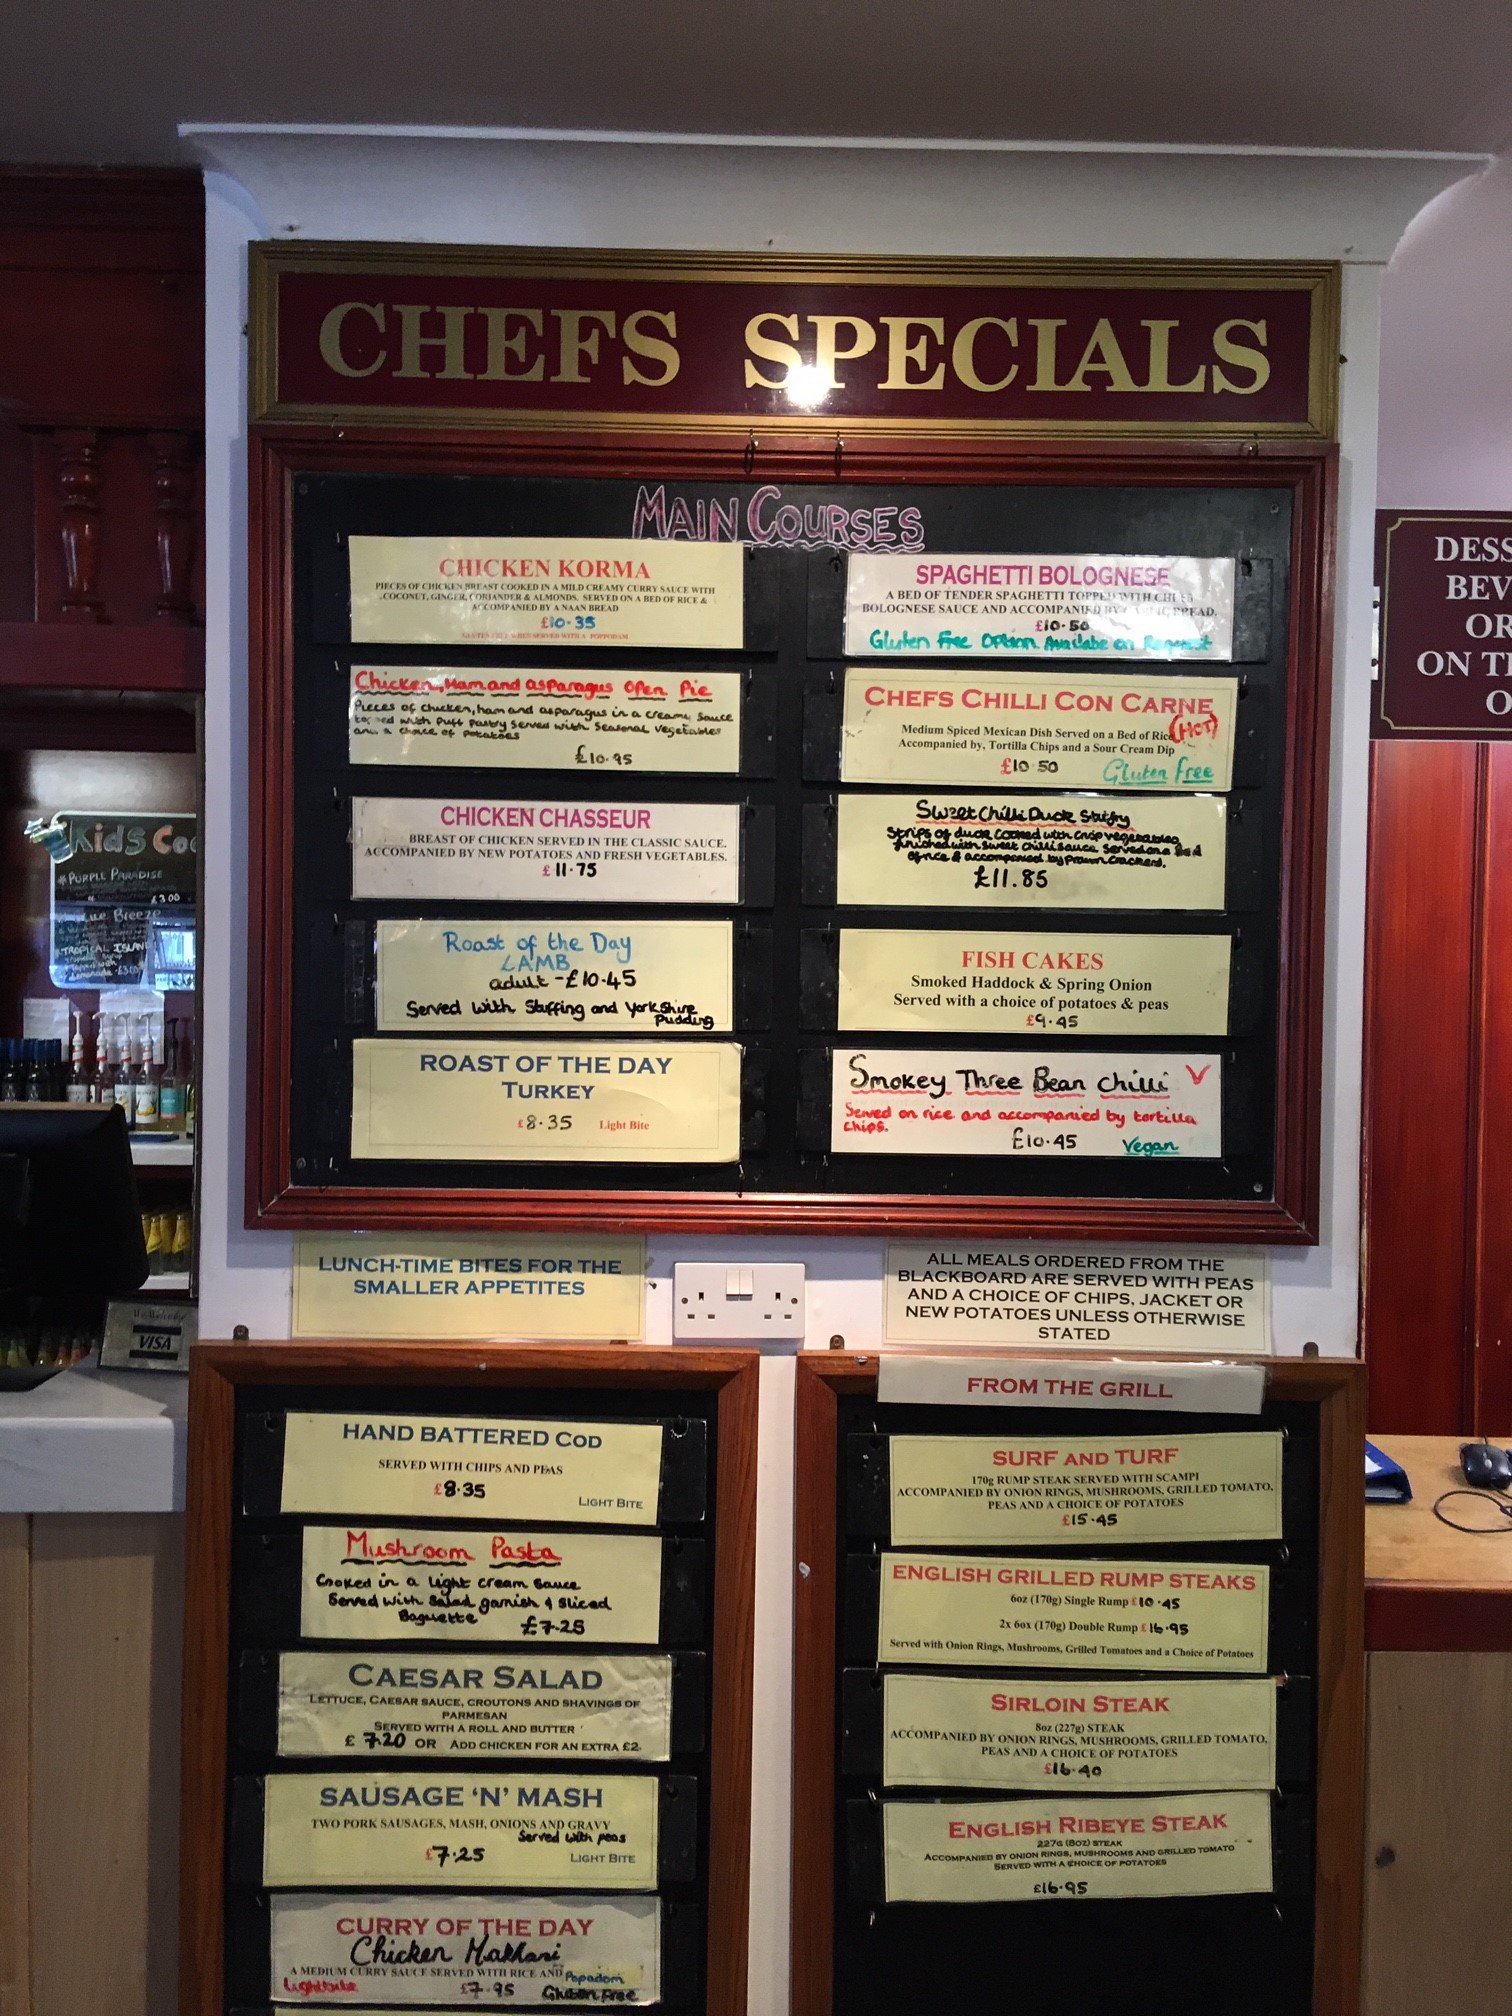 CHEFS SPECIALS
MAIN COURSES
CHICKEN KORMA
PIECES OF CHICKEN BREAST COOKED IN A MILD CREAMY CURRY SAUCE WITH
COCONUT, GINGER, CORIANDER & ALMONDS. SERVED ON A BED OF RICE &
ACCOMPANIED BY A NAAN BREAD
£10.35
GLUTEN FREE WHEN SERVED WITH A POPPODAM
Chicken, Ham and asparagus Open Pie
Pieces of chicken, ham and asparagus in a creamy sauce
topped with Puff Pastry Served with Seasonal vegetables
and a choice of potatoes
£10.95
CHICKEN CHASSEUR
BREAST OF CHICKEN SERVED IN THE CLASSIC SAUCE.
ACCOMPANIED BY NEW POTATOES AND FRESH VEGETABLES.
£ 11.75
Roast of the Day
LAMB
adult - £10.45
Served with Stuffing and Yorkshire
Pudding
ROAST OF THE DAY
TURKEY
£8.35 Light Bite
SPAGHETTI BOLOGNESE
A BED OF TENDER SPAGHETTI TOPPED WITH CHEFS
BOLOGNESE SAUCE AND ACCOMPANIED BY GARLIC BREAD.
£10.50
Gluten Free Option Available on Request
CHEFS CHILLI CON CARNE
(HOT)
Medium Spiced Mexican Dish Served on a Bed of Rice
Accompanied by, Tortilla Chips and a Sour Cream Dip
£10.50 Gluten free
Sweet Chilli Duck Stirfry
Strips of duck cooked with crisp vegetables
finished with sweet chilli sauce Served on a Bed
of rice & accompanied by prawn crackers.
£11.85
FISH CAKES
Smoked Haddock & Spring Onion
Served with a choice of potatoes & peas
£9.45
Smokey Three Bean Chilli V
Served on rice and accompanied by tortilla
chips.
£10.45 Vegan
LUNCH-TIME BITES FOR THE
SMALLER APPETITES
ALL MEALS ORDERED FROM THE
BLACKBOARD ARE SERVED WITH PEAS
AND A CHOICE OF CHIPS, JACKET OR
NEW POTATOES UNLESS OTHERWISE
STATED
HAND BATTERED COD
SERVED WITH CHIPS AND PEAS
£8.35
LIGHT BITE
Mushroom Pasta
Cooked in a light cream sauce
Served with Salad garnish & Sliced
Baguette £7.25
CAESAR SALAD
LETTUCE, CAESAR SAUCE, CROUTONS AND SHAVINGS OF
PARMESAN
SERVED WITH A ROLL AND BUTTER
£ 7.20 OR ADD CHICKEN FOR AN EXTRA £2
SAUSAGE 'N' MASH
TWO PORK SAUSAGES, MASH, ONIONS AND GRAVY
Served with peas
£7.25 LIGHT BITE
CURRY OF THE DAY
Chicken Makhani
A MEDIUM CURRY SAUCE SERVED WITH RICE AND Popadom
Lightbite £7.95 Gluten Free
FROM THE GRILL
SURF AND TURF
170g RUMP STEAK SERVED WITH SCAMPI
ACCOMPANIED BY ONION RINGS, MUSHROOMS, GRILLED TOMATO,
PEAS AND A CHOICE OF POTATOES
£15.45
ENGLISH GRILLED RUMP STEAKS
6oz (170g) Single Rump £10.45
2x 6oz (170g) Double Rump £16.95
Served with Onion Rings, Mushrooms, Grilled Tomatoes and a Choice of Potatoes
SIRLOIN STEAK
8oz (227g) STEAK
ACCOMPANIED BY ONION RINGS, MUSHROOMS, GRILLED TOMATO,
PEAS AND A CHOICE OF POTATOES
£16.40
ENGLISH RIBEYE STEAK
227G (8OZ) STEAK
ACCOMPANIED BY ONION RINGS, MUSHROOMS AND GRILLED TOMATO
SERVED WITH A CHOICE OF POTATOES
£16.95
Kids Coc
*PURPLE PARADISE
£3.00
Blue Breeze
*TROPICAL ISLAND
Lemonade £3.00
VISA
DESS
BEV
OR
ON TH
O